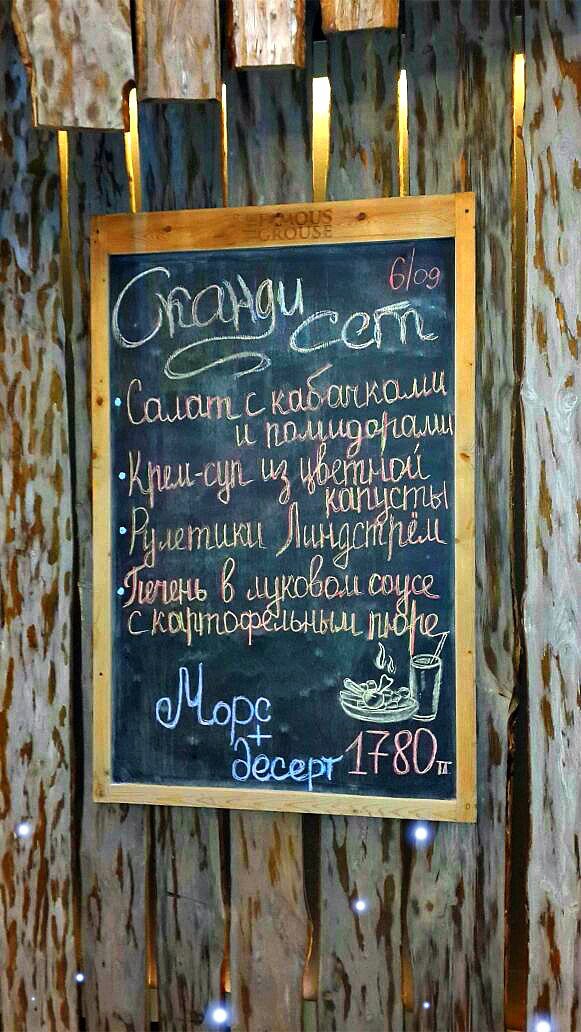 FAMOUS
GROUSE
6/09
Сканди
сет
Салат с кабачками
и помидорами
Крем-суп из цветной
капусты
Рулетики Линдстрём
Печень в луковом соусе
с картофельным пюре
Морс
+
десерт 1780